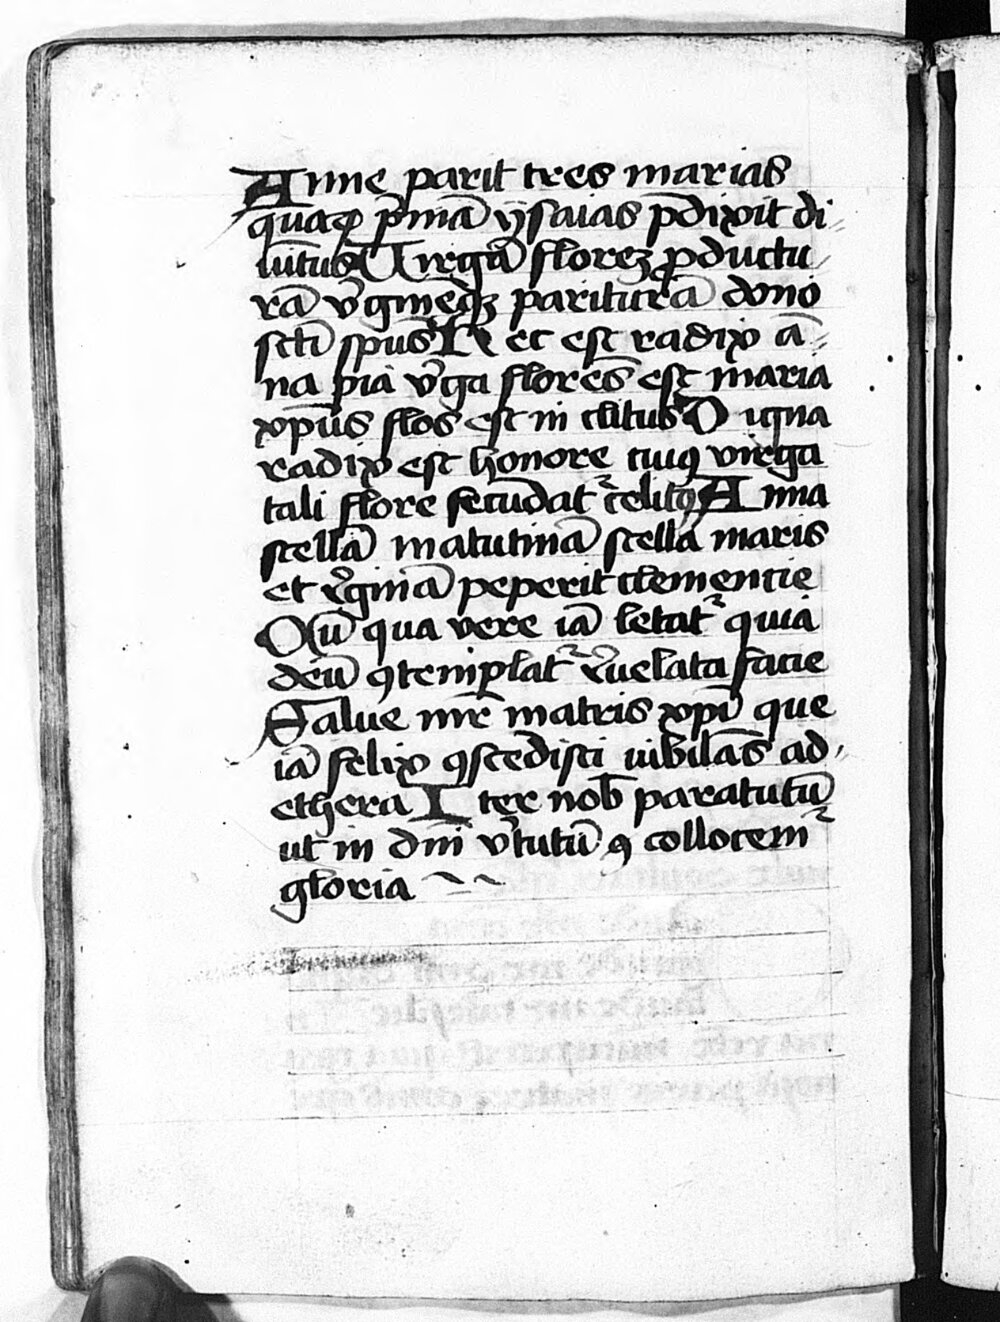 Anne parit tres marias
quaꝝ p̄mā ysaias p̄dixit di⸗
uītus Virgā florez ꝓductu⸗
rā v̾gineqꝫ pariturā dono
sctī spūs Hec est radix ā⸗
na pia v̾ga flores est maria
xp̄us flos est in clitus Digna
radix est honore cuiꝰ virga
tali flore fecūdat᷑ celitꝰ Anna
stellā matutinā stella maris
et r̾ginā peperit clementie
Cū qua vere iā letat᷑ quia
deū ꝯtemplat᷑ r̾uelata facie
Salue mr̄e matris xp̄i que
iā felix ꝯscēdisti iubilās ad⸗
ethera Iter nob̄ paratutū
ut in dn̄i v̾tutū ꝯ collocem᷑
gloria